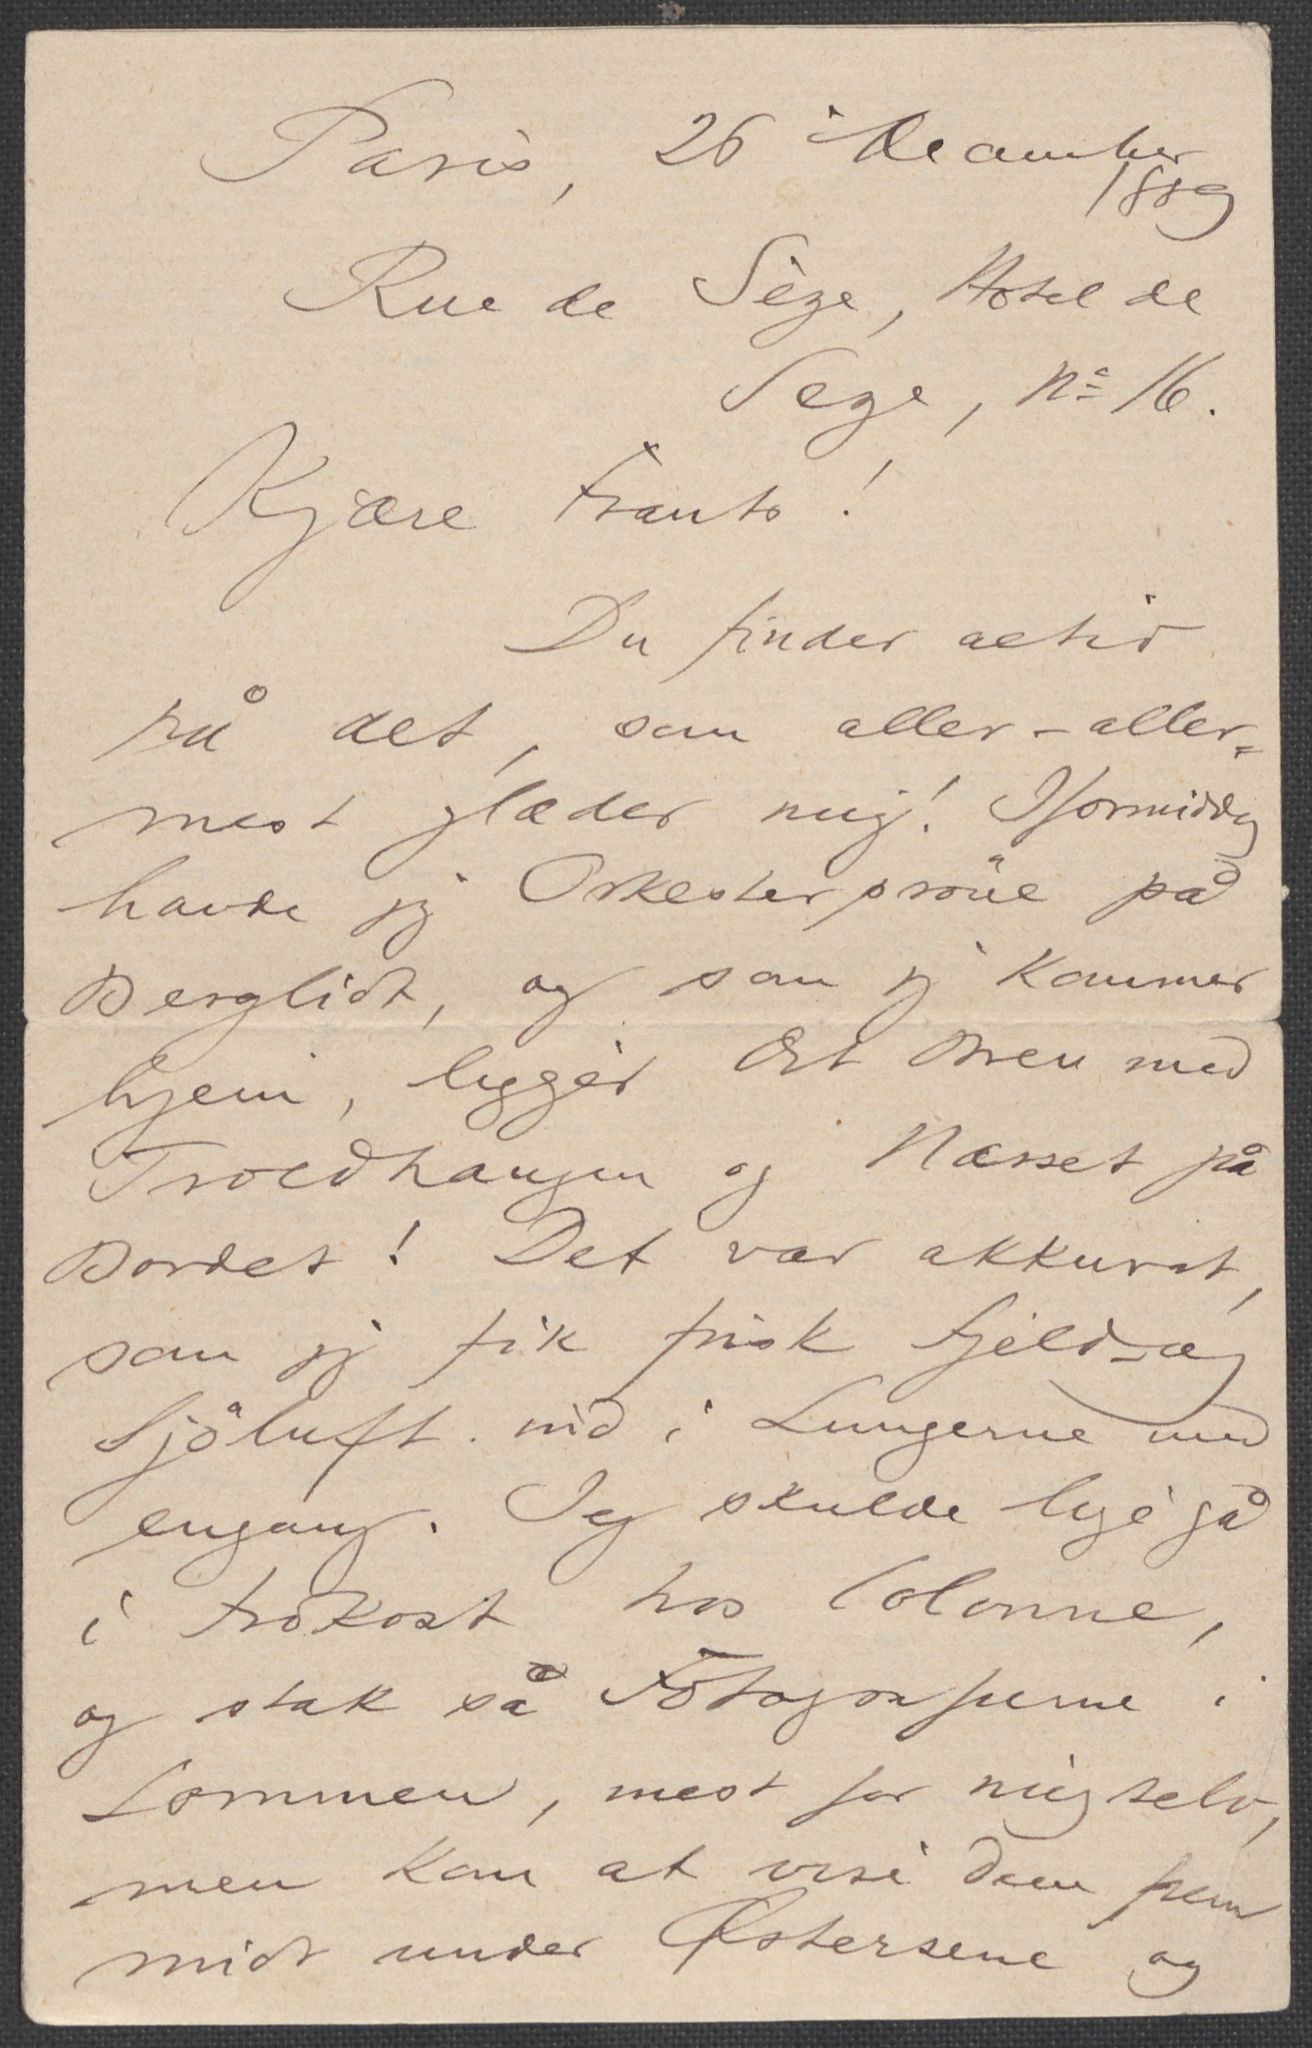 Paris, 26 December
1889
Rue de Sèze, Hotel de
Seze, No 16.
Kjære Frants!
Du finder altid
på det, som aller-aller=
mest glæder mig! Iformiddag
havde jeg Orkesterprøve på
Bergliot, og som jeg kommer
hjem, ligger Dit Brev med
Troldhaugen og Næsset på
Bordet! Det var akkurat,
som jeg fik frisk Fjeld- og
Sjøluft ind i Lungerne med
engang. Jeg skulde lige gå
i Frokost hos Colonne,
og stak så Fotografierne i
Lommen, mest for mig selv,
men kom at vise dem frem
midt under Østersene og